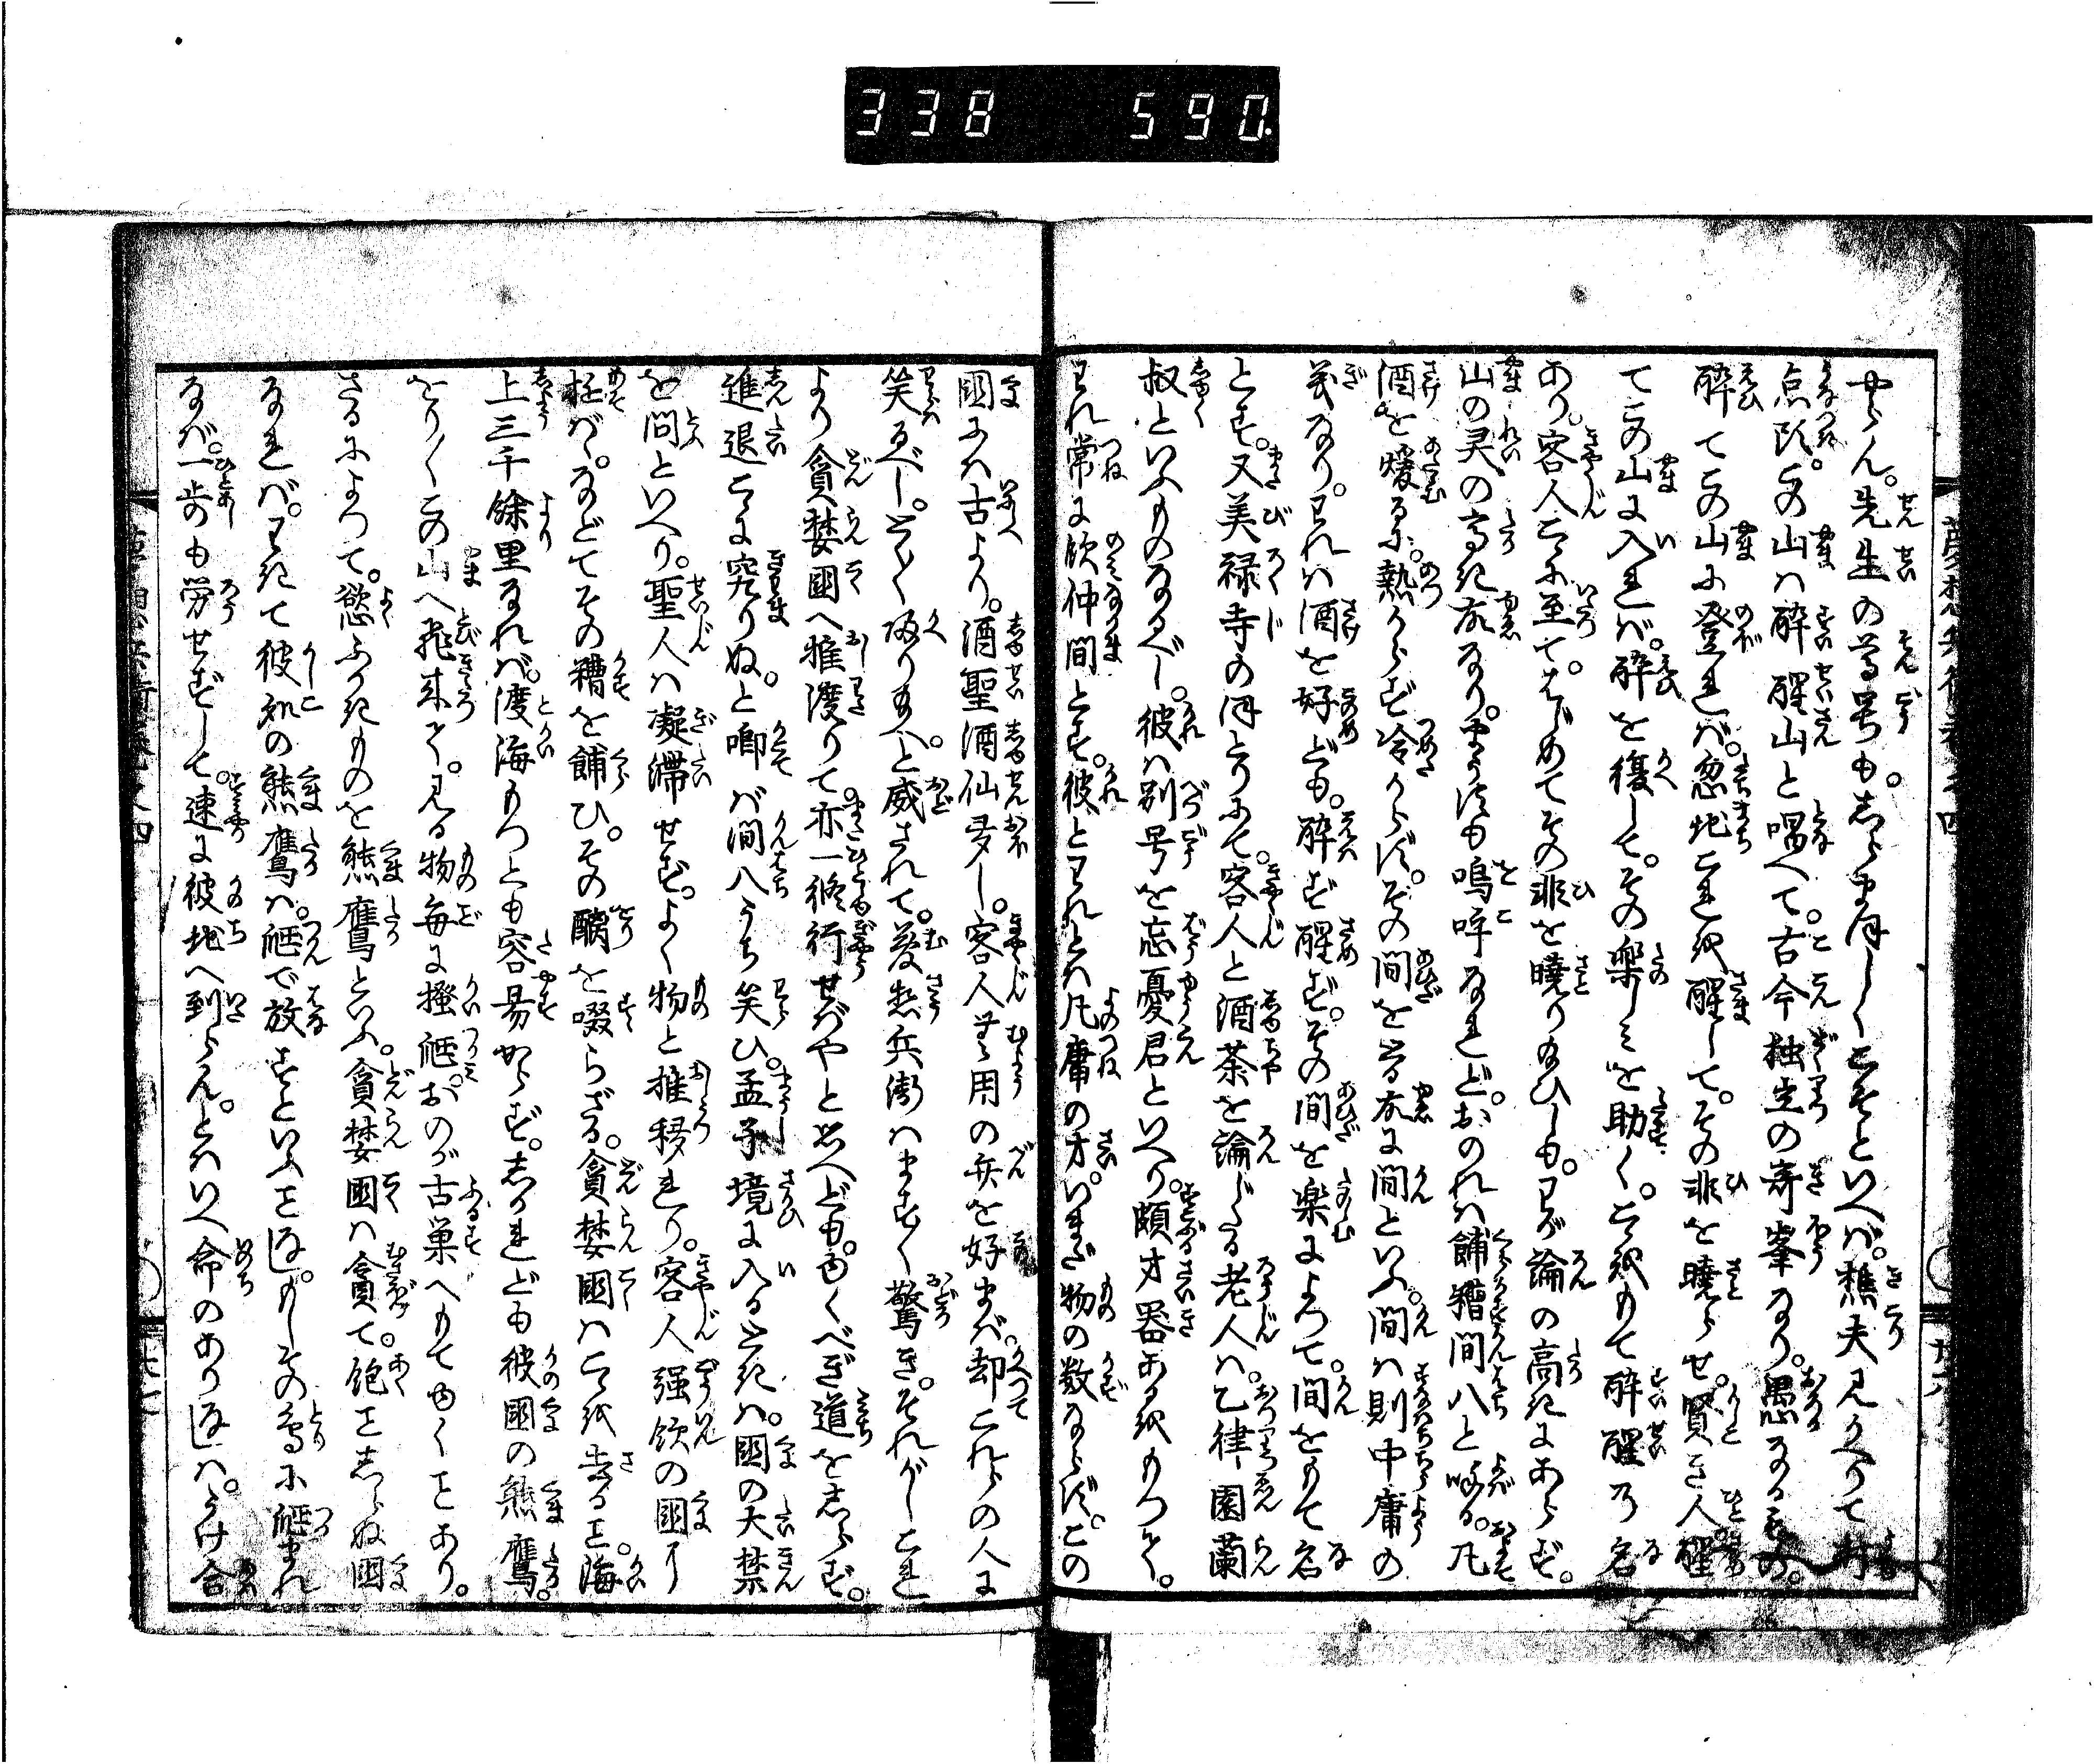 338 590
やらん。先生の尊号も。しらまほしくこそといへば。樵夫見かへりて打
点頭。この山は酔醒山と唱へて。古今独立の奇峯なり。愚なるもの。
酔てこの山に登れば。忽地これを醒して。その非を暁らせ。賢き人醒
てこの山に入れば。酔を復して。その楽しみを助く。これをもて酔醒の名
あり。客人こゝに至て。はじめてその非を暁り給ひしも。わが論の高きにあらず。
山の灵の高き故なり。かういふも嗚呼なれど。おのれは餔糟間八と呼る。凡
酒を煖るに。熱からず冷からず。その間を当る故に間といふ。間は則中庸の
義なり。われは酒を好ども。酔ず醒ず。その間を楽むによつて。間をもて名
とす。又美禄寺のほとりにて。客人と酒茶を論じたる老人は。乙律園蘭
叔といふものなるべし。彼は別号を忘憂君といへり。頗才器あるをもつて。
われ常に飲仲間とす。彼とわれとは凡庸の才。いまだ物の数ならず。この
國には古より。酒聖酒仙多し。客人無用の弁を好まば。却これらの人に
笑るべし。とく\/帰り給へと威されて。夢想兵衛はます\/驚き。それがしこれ
より貪婪國へ推渡りて。亦一修行せばやと思へども。ゆくべき道をしらず。
進退こゝに究りぬ。と喞ば間八うち笑ひ。孟子境に入るときは。國の大禁
を問といへり。聖人は凝滞せず。よく物と推移れり。客人強飲の國に
在ば。などてその糟を餔ひ。その醨を啜らざる。貪婪國はこゝを去ること。海
上三千餘里なれば。渡海もつとも容易からず。しかれども彼國の熊鷹。
をり\/この山へ飛来て。見る物毎に搔𢹂。おのが古巣へもてゆくことあり。
さるによつて。慾ふかきものを熊鷹といふ。貪婪國は貪て。飽ことをしらぬ國
なれば。わきて彼処の熊鷹は。で放すといふことなし。もしその鳥にまれ
なば。一歩も労せずして。速に彼地へ到らん。とはいへ命のありなしは。うけ合